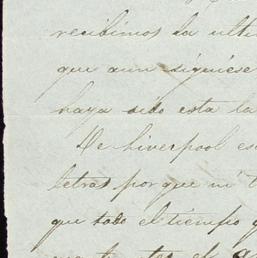 recibimos la ulti
que aun siguiese
haya sido esta la
De Liverpool es
letras porque ni t
que todo el tiempo q